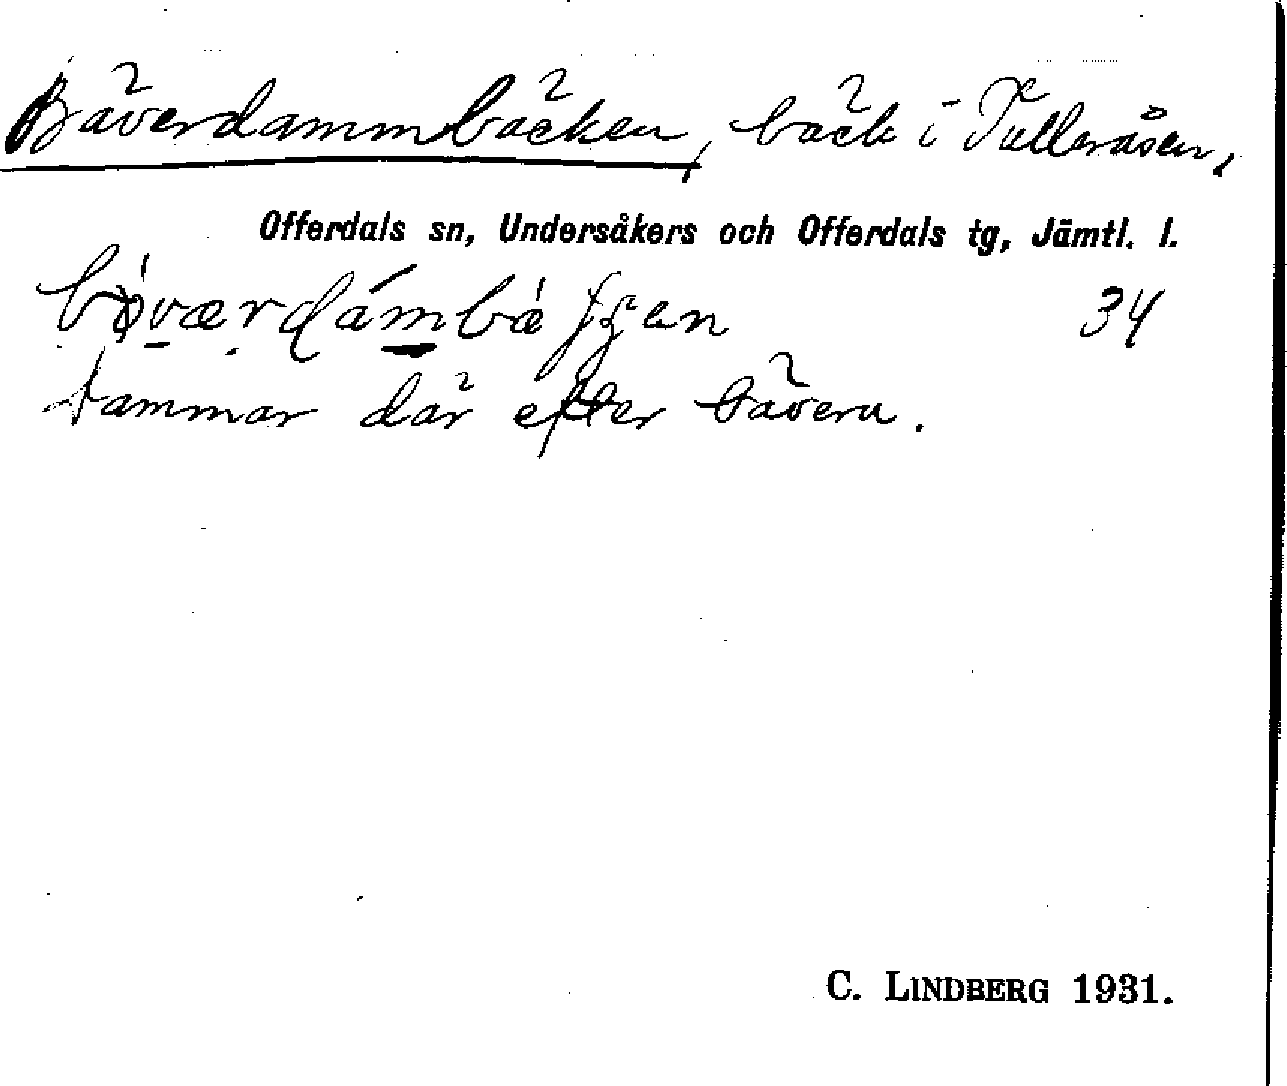 Bäverdammbäcken, bäck i Tulleråsen,
Offerdals sn, Undersåkers och Offerdals tg, Jämtl. l.
34
dammar där efter bävern.
C. LINDBERG 1931.